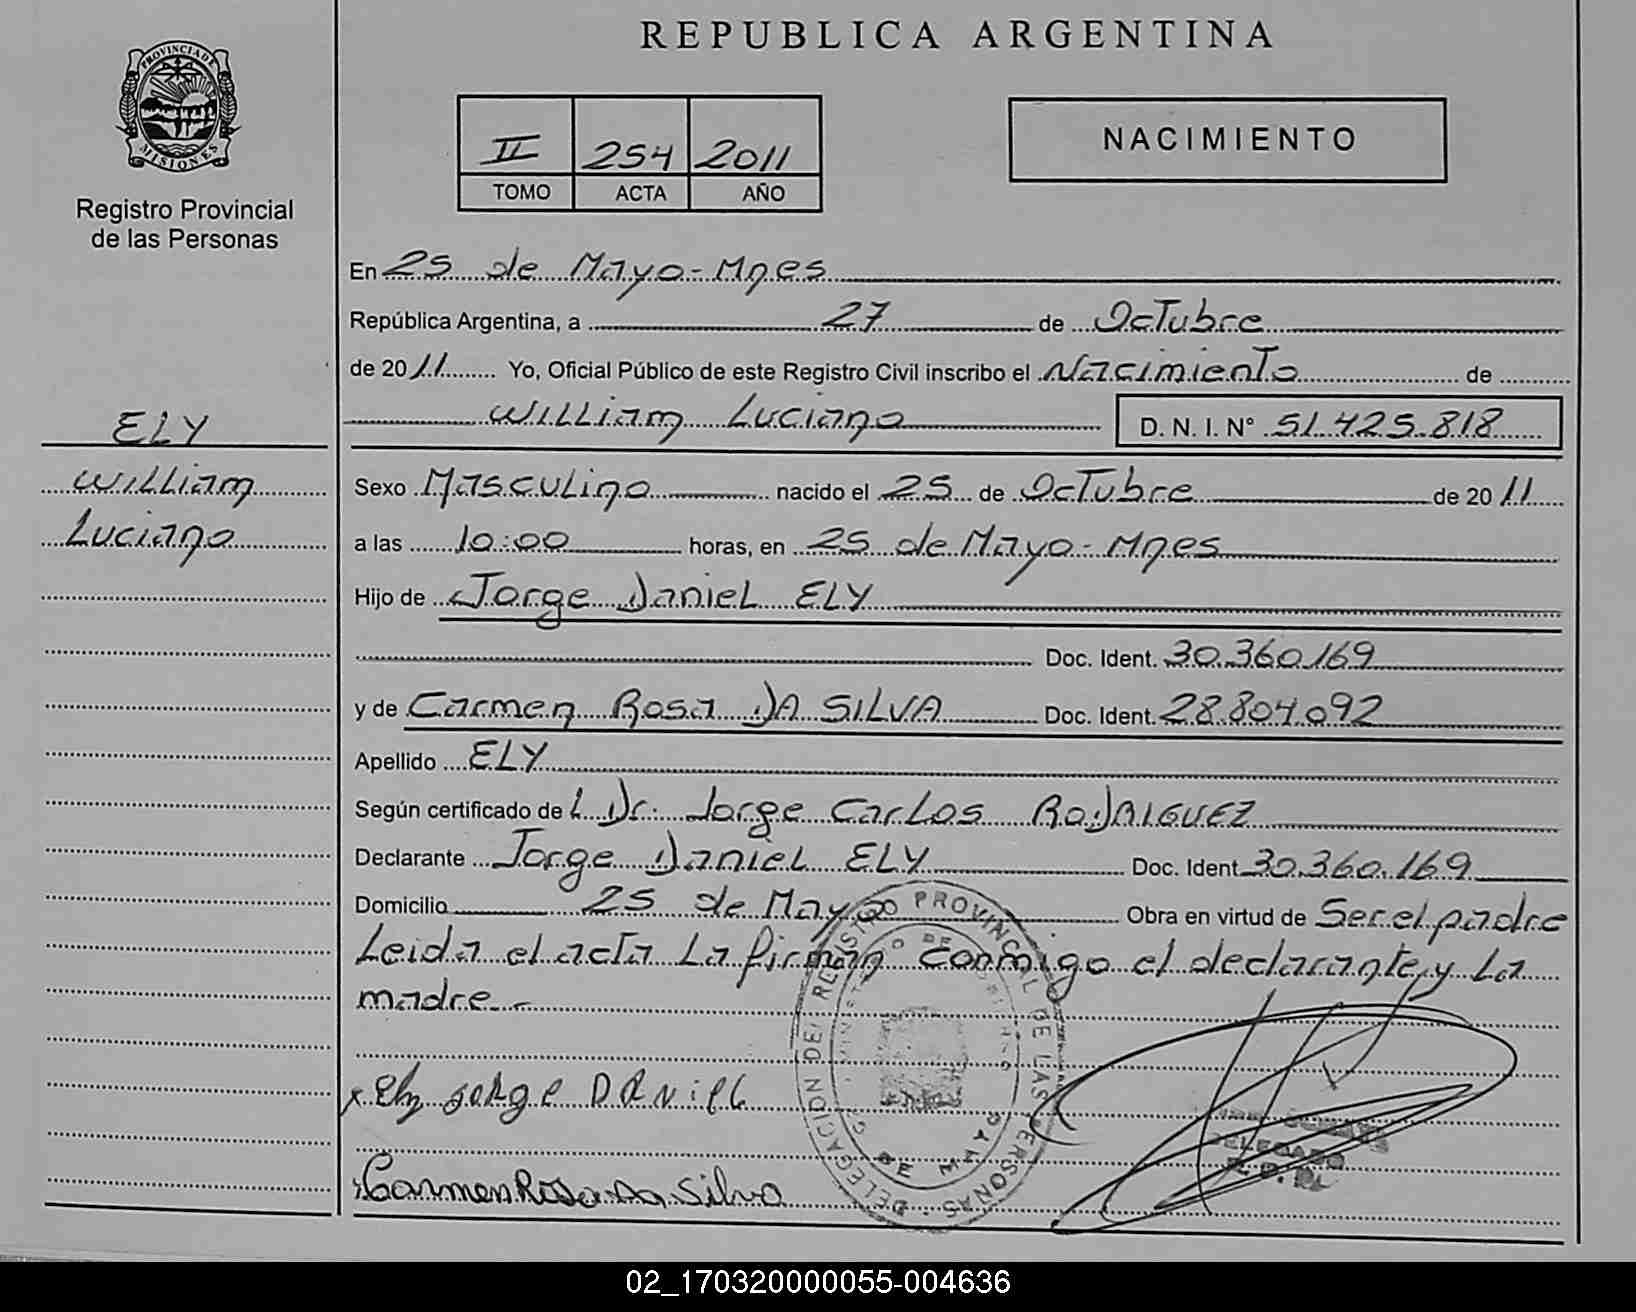 REPUBLICA ARGENTINA
PROVINCIA DE
MISIONES
Registro Provincial
de las Personas
II 254 2011
TOMO ACTA AÑO
NACIMIENTO
En 25 de Mayo - Mnes
República Argentina, a 27 de Octubre
de 2011 Yo, Oficial Público de este Registro Civil inscribo el Nacimiento de
William Luciano D. N. I. N° 51.425.818
ELY
William
Luciano
Sexo Masculino nacido el 25 de Octubre de 2011
a las 10:00 horas, en 25 de Mayo - Mnes
Hijo de Jorge Daniel ELY
Doc. Ident. 30.360.169
y de Carmen Rosa DA SILVA Doc. Ident. 28.804.092
Apellido ELY
Según certificado de L Dr. Jorge Carlos RODRIGUEZ
Declarante Jorge Daniel ELY Doc. Ident 30.360.169
Domicilio 25 de Mayo Obra en virtud de Ser el padre
Leida el acta La firman conmigo el declarante y La
madre.-
x Ely Jorge DANiel
Carmen Rosa Da Silva
DELEGACION DEL REGISTRO PROVINCIAL DE LAS PERSONAS
DE MAYO
DELEGADO
02_170320000055-004636